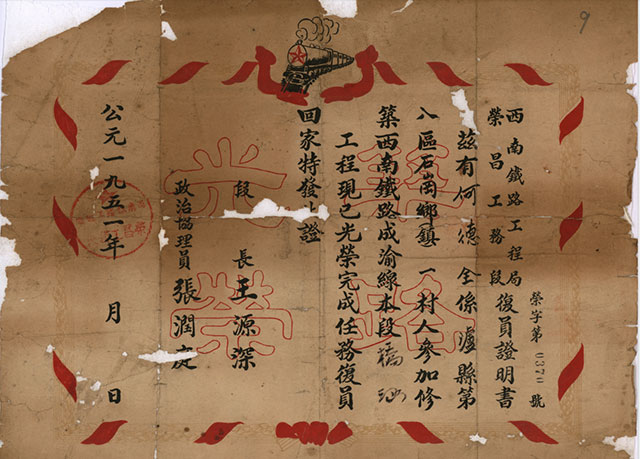 9
西南鐵路工程局
榮昌工務段
復員證明書
榮字第0370號
茲有何德全係瀘縣第
八區石崗鄉鎮一村人參加修
築西南鐵路成渝線本段橋涵
工程現已光榮完成任務復員
回家特發此證
段長王源深
政治協理員張潤庭
公元一九五一年 月 日
光榮